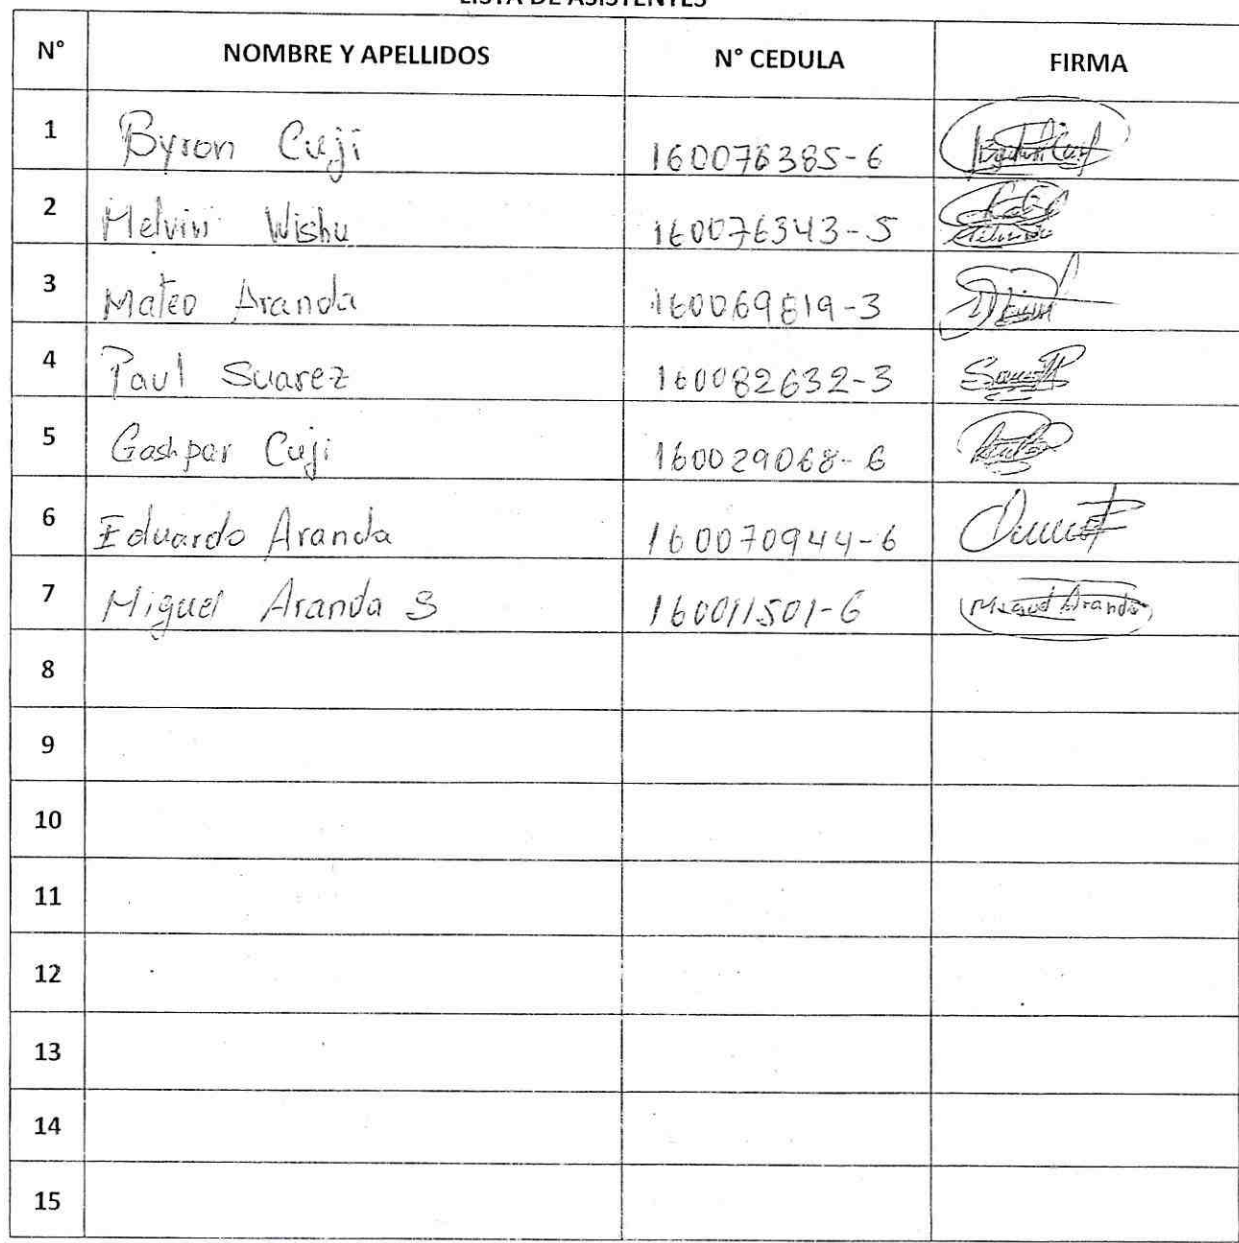 LISTA DE ASISTENTES
N° NOMBRE Y APELLIDOS N° CEDULA FIRMA
1 Byron Cuji 160076385-6
2 Melvin Wishu 160076343-5
3 Mateo Aranda 160069819-3
4 Paul Suarez 160082632-3
5 Gashpar Cuji 160029068-6
6 Eduardo Aranda 160070944-6
7 Miguel Aranda S 160011501-6 Miguel Aranda
8
9
10
11
12
13
14
15